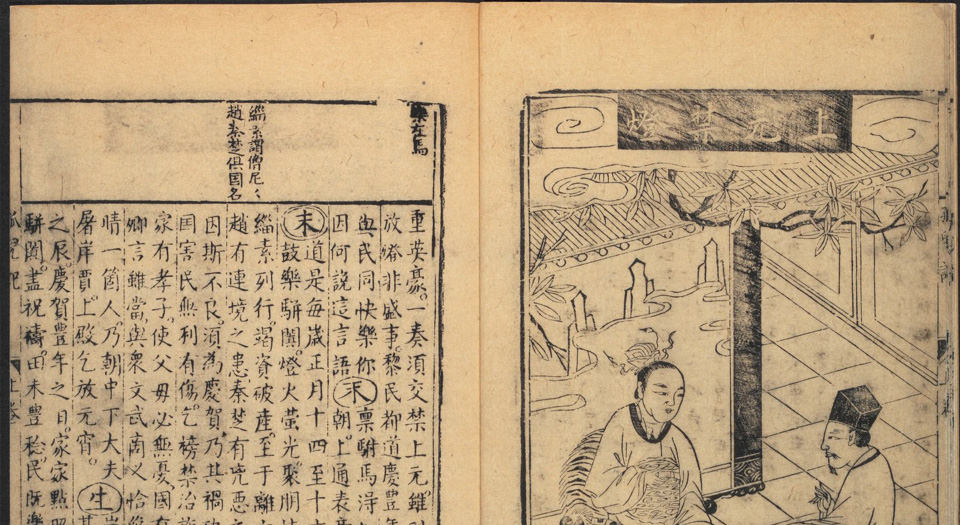 上元禁燈
緇素謂僧尼々
趙秦楚俱国名
重英豪。一奏須交禁上元。雖
放燈非盛事。黎民都道慶豊年
與民同快樂你末稟駙馬淂
因何說這言語朝上通表章
末道是每歲正月十四至十
鼓樂駢闐。燈火螢光聚朋
緇素列行。竭資破產。至于離
趙有連境之患秦楚有兇惡
因斯不良。須為慶賀乃其禍
国害民無利有傷。乞榜禁治
家有孝子。使父毋必無憂。國有
卿言雖當。與衆文武商义恰
晴一箇人。乃朝中下大夫生
屠岸賈上殿乞放元宵。
之辰。慶賀豊年之日。家家點照
駢闐。盡祝禱田禾豊稔民既
孤兒記 上卷